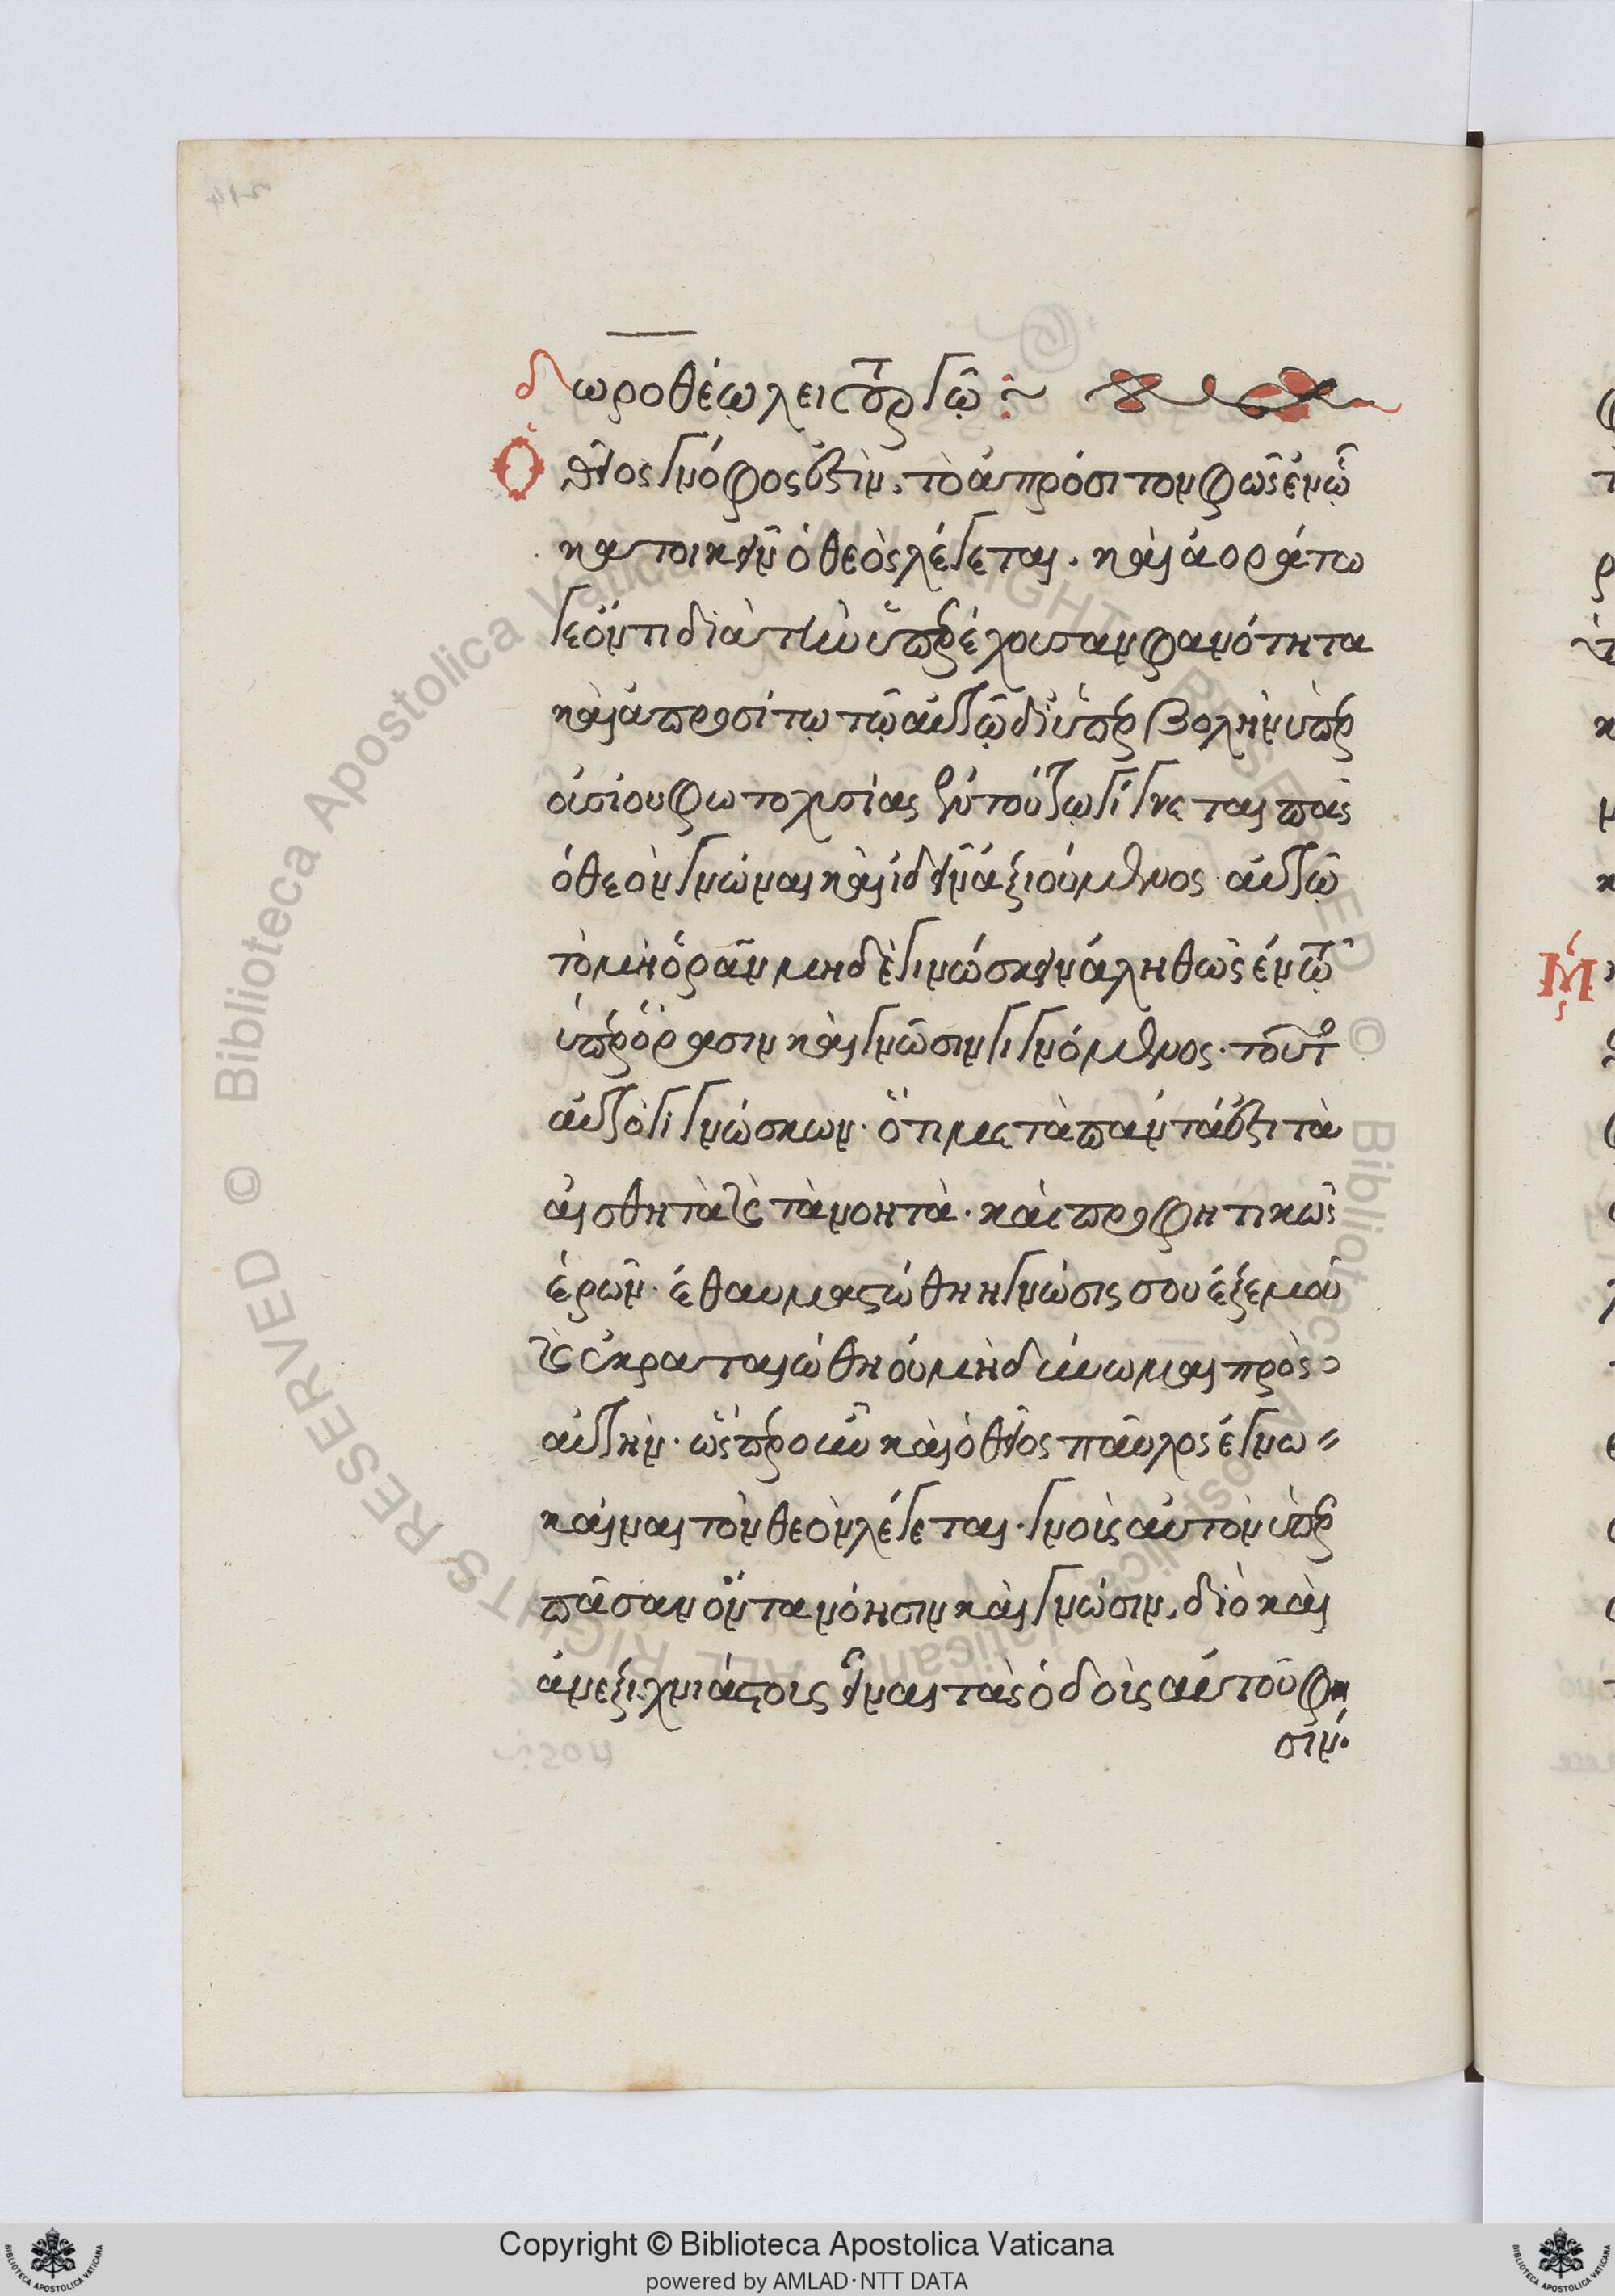 δωροθέω λειτουργῶ :~
Ὁ θεῖος γνόφος ἐστὶν, τὸ ἀπρόσιτον φῶς ἐν ᾧ
κατοικεῖν ὁ θεὸς λέγεται. καὶ ἀοράτω
γε ὄντι διὰ τὴν ὑπερέχουσαν φανότητα
καὶ ἀπροσίτῳ τῷ αὐτῷ δι' ὑπερβολὴν ὑπερ
οισίου φωτοχυσίας ἐν τούτῳ γίγνεται πᾶς
ὁ θεὸν γνῶναι καὶ ἰδεῖν ἀξιούμενος αὐτῶ
τὸ μὴ ὁρᾶν μηδὲ γινώσκειν ἀληθῶς ἐν τῷ
ὑπὲρ ὅρασιν καὶ γνῶσιν γιγνόμενος. τοῦτο
αὐτὸ γιγνώσκων. ὅτι μετὰ πάντά ἐστι τὰ
αἰσθητὰ καὶ τὰ νοητὰ. καὶ προφητικῶς
ἐρῶν. ἐθαυμαστώθη η γνῶσις σου ἐξ εμοῦ
καὶ ἐκραταιώθη οὐ μὴ δύνωμαι πρὸς
αὐτὴν. ὥσπερ οὖν καὶ ὁ θεῖος παῦλος ἐγνω
κέναι τὸν θεὸν λέγεται. γνοὶς αὐτὸν ὑπὲρ
πᾶσαν ὄντα νόησιν καὶ γνῶσιν, διὸ καὶ
ἀνεξιχνιάστοις εἶναι τὰς ὁδοὶς αὐτοῦ φη
σιν.
Copyright © Biblioteca Apostolica Vaticana
powered by AMLAD·NTT DATA